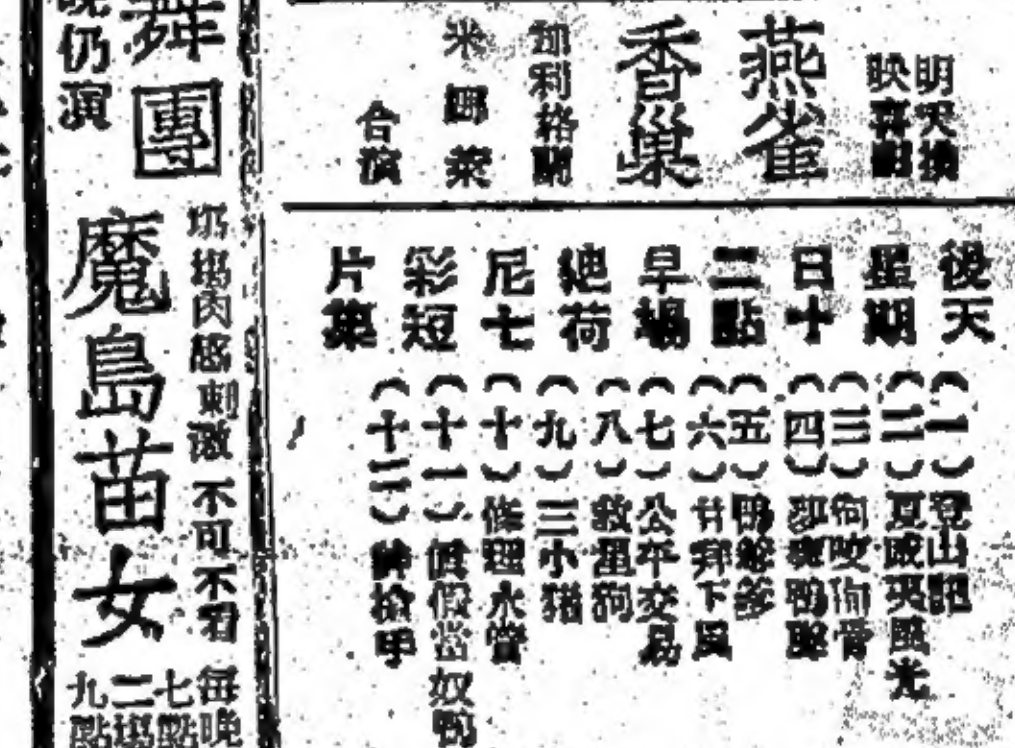 明天換
映喜劇
燕雀
香巢
加利格蘭
米娜萊
合演
後天
星期
日十
二點
早場
絕荷
尼七
彩短
片集
(一)登山記
(二)夏威夷風光
(三)狗咬狗骨
(四)鴨
(五)鴨爹爹
(六)甘拜下風
(七)公平交易
(八)救星狗
(九)三小豬
(十)修理水管
(十一)假當奴鴨
(十二)神槍手
舞團
晚仍演
場場肉感刺激 不可不看
魔島苗女
每晚
七點
二場
九點